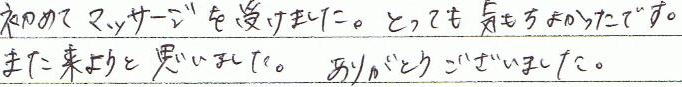 初めてマッサージを受けました。とっても気もちよかったです。
また来ようと思いました。ありがとうございました。